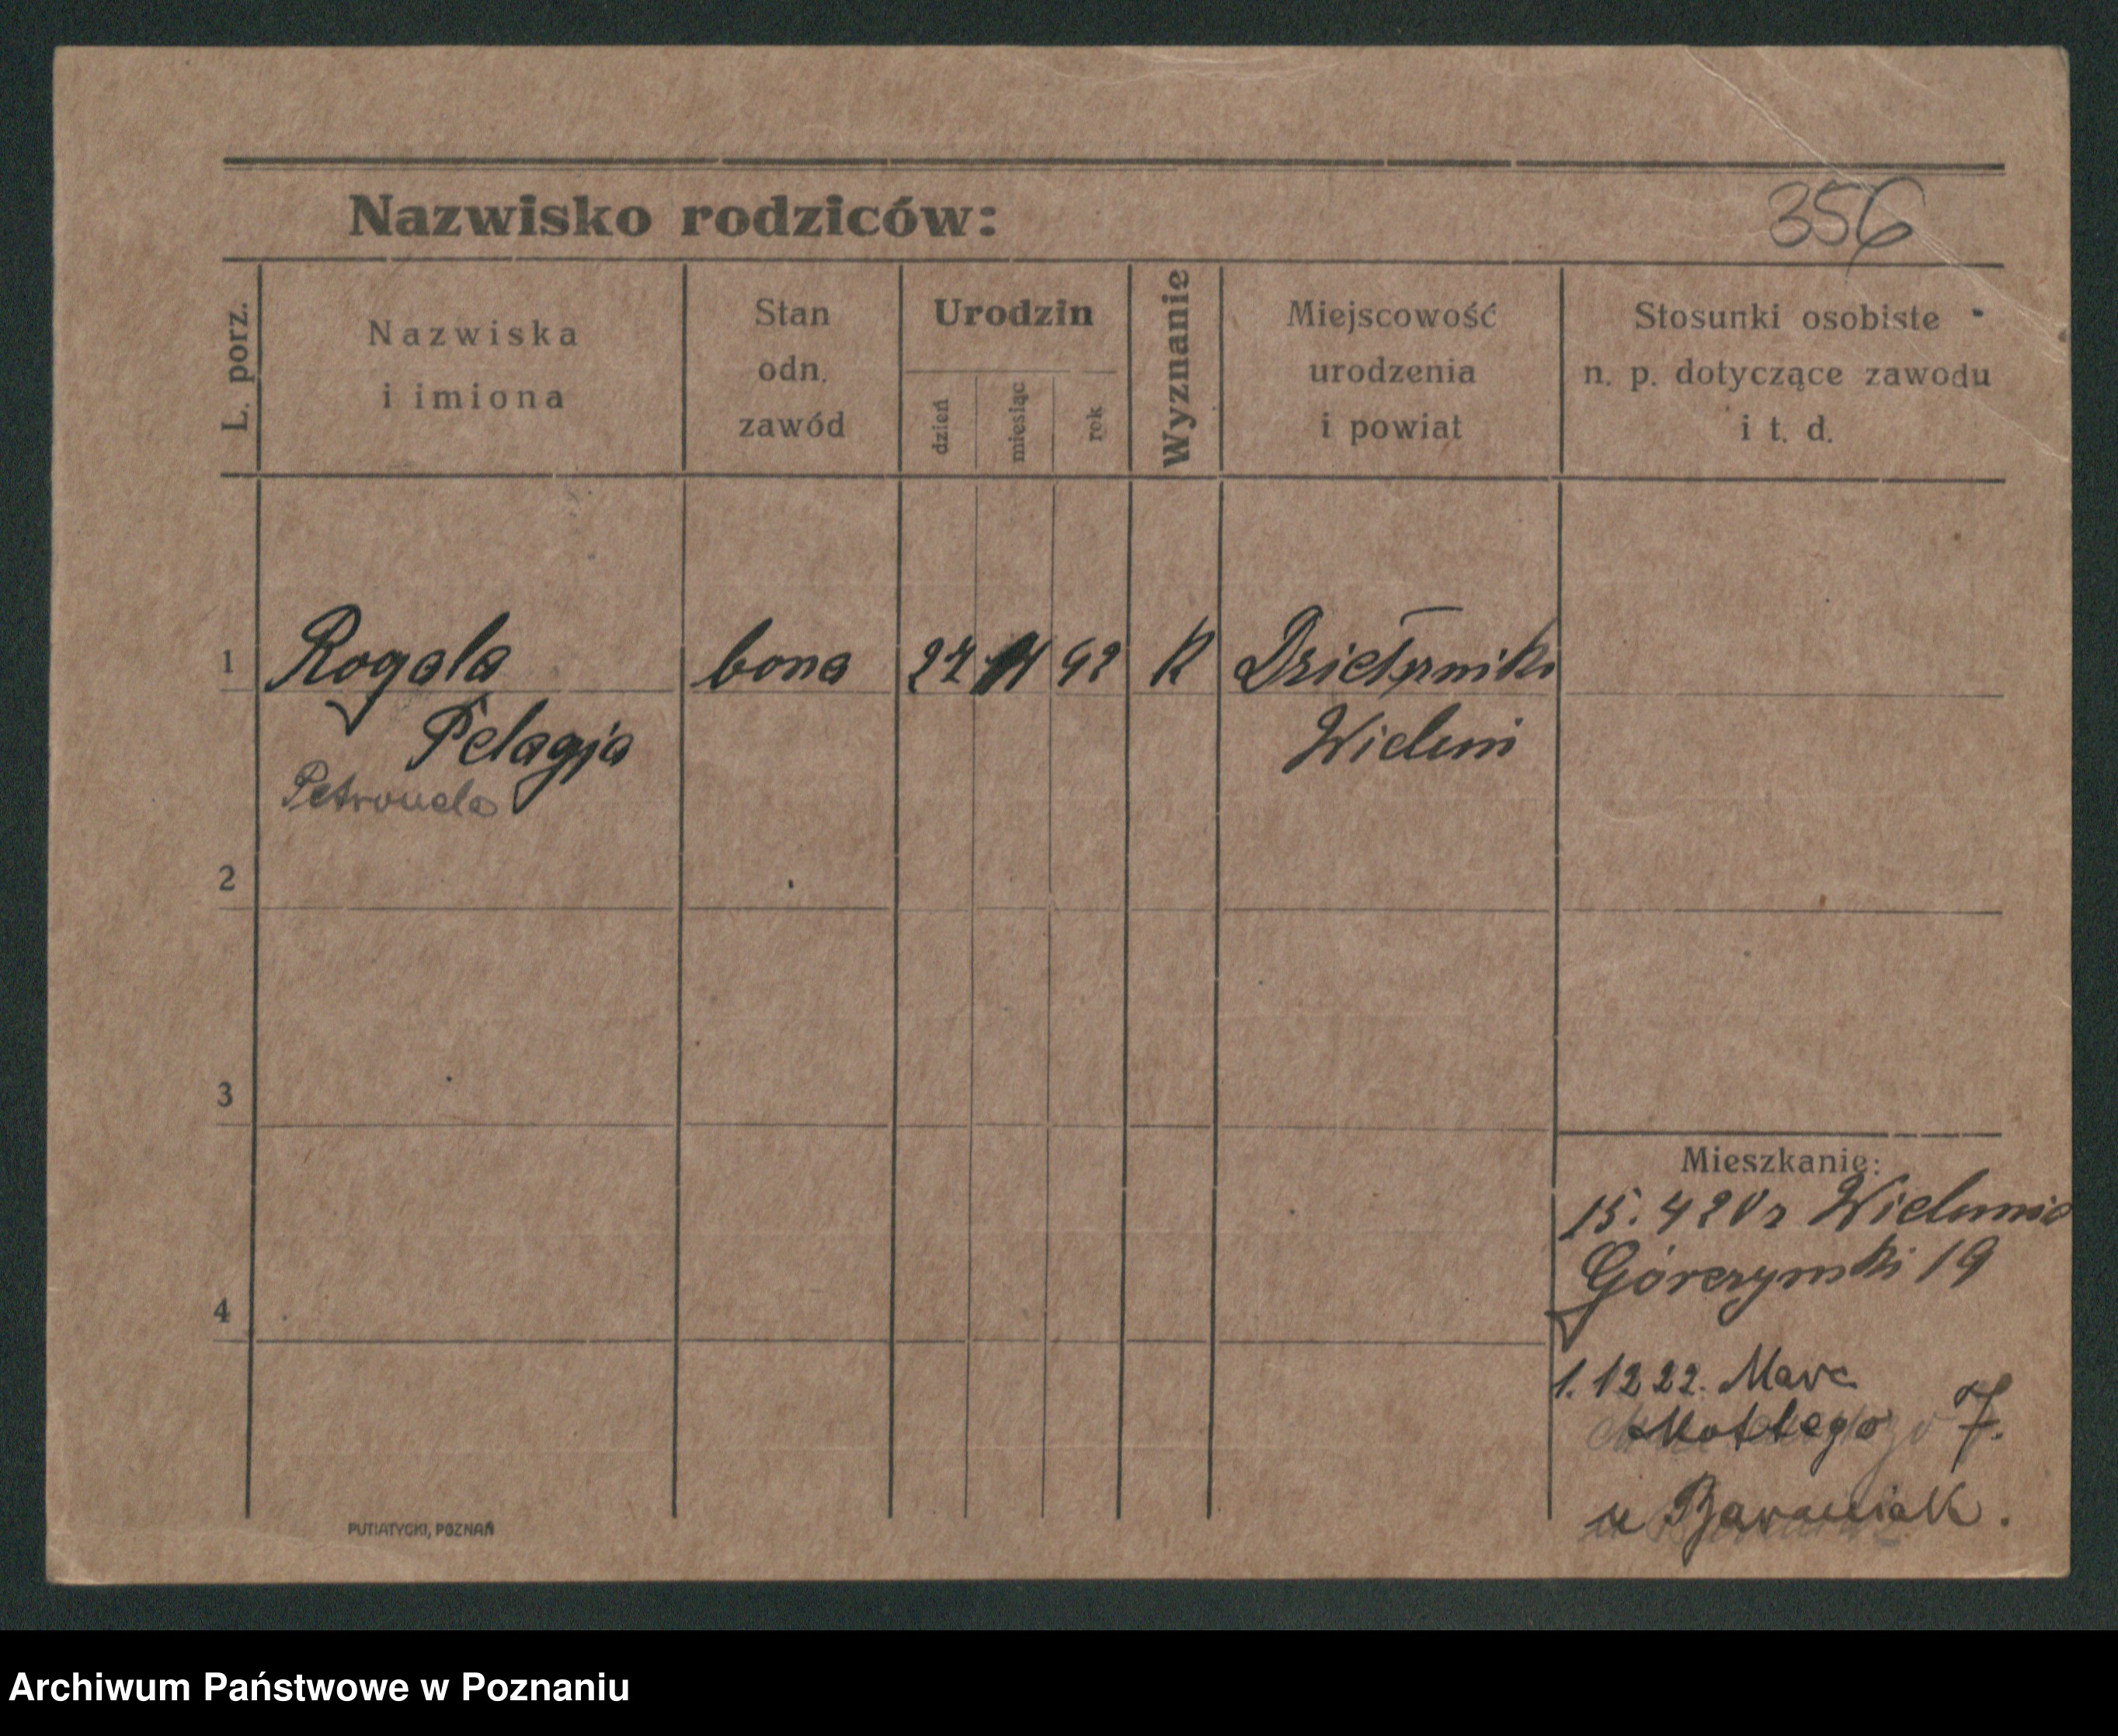 Nazwisko rodziców:
356
L. porz.
Nazwiska
i imiona
Stan
odn.
zawód
Urodzin
dzień
miesiąc
rok
Wyznanie
Miejscowość
urodzenia
i powiat
Stosunki osobiste
n. p. dotyczące zawodu
i t. d.
1 Rogala bona 27 92 K
Pelagja Wieluń
Petronela
2
3
Mieszkanie:
15. 4 20 r
Górczynski 19
4
1. 12 22. Marc
Mottego 7.
u Barauiak.
PUTIATYCKI, POZNAŃ
Archiwum Państwowe w Poznaniu